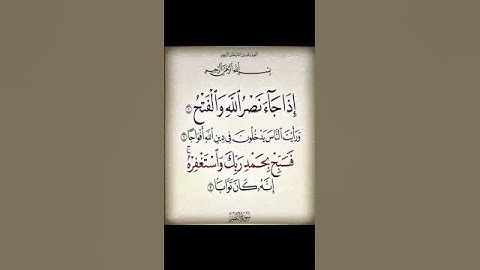 بِسْمِ اللَّهِ الرَّحْمَٰنِ الرَّحِيمِ
إِذَا جَآءَ نَصْرُ ٱللَّهِ وَٱلْفَتْحُ ١
وَرَأَيْتَ ٱلنَّاسَ يَدْخُلُونَ فِى دِينِ ٱللَّهِ أَفْوَاجًا ٢
فَسَبِّحْ بِحَمْدِ رَبِّكَ وَٱسْتَغْفِرْهُ ۚ
إِنَّهُۥ كَانَ تَوَّابًۢا ٣
سُورَةُ النَّصْرِ